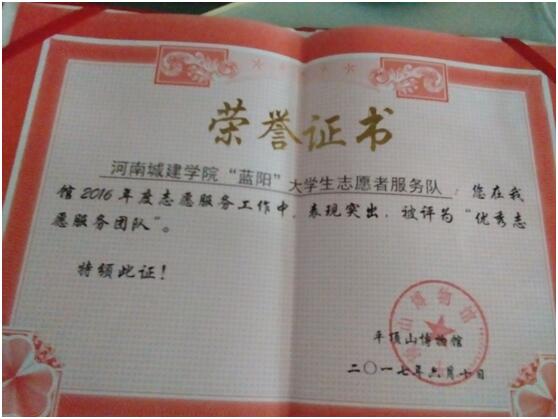 荣誉证书
河南城建学院“蓝阳”大学生志愿者服务队：您在我
馆2016年度志愿服务工作中，表现突出，被评为“优秀志
愿服务团队”。
特颁此证！
平顶山博物馆
平顶山博物馆
二〇一七年六月十日